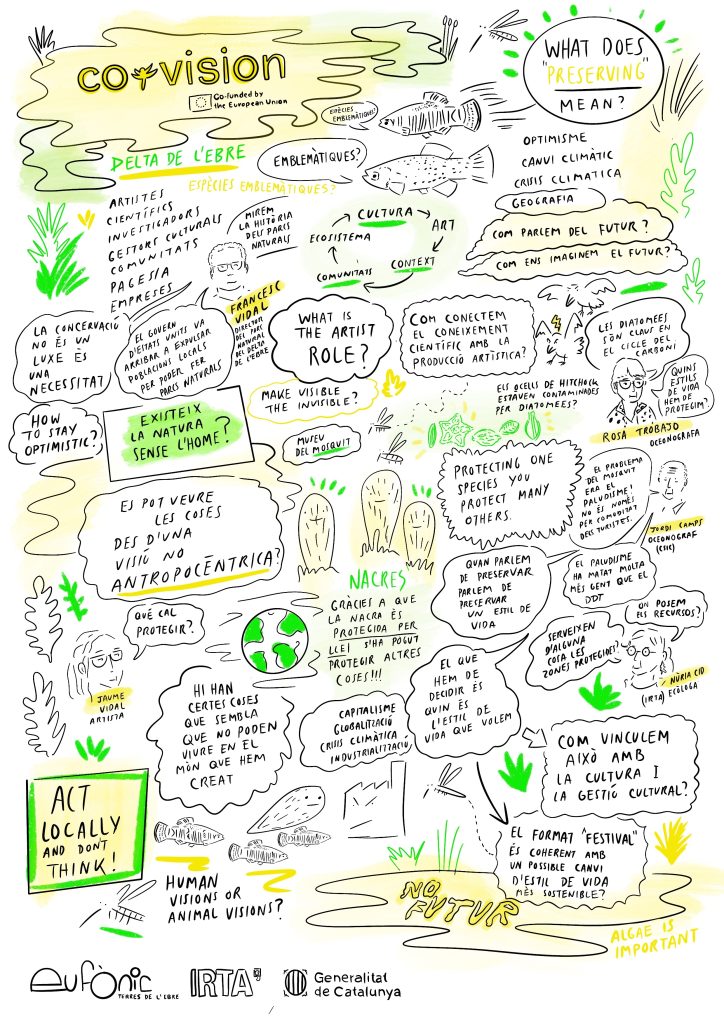 co-vision
Co-funded by
the European Union
WHAT DOES
"PRESERVING"
MEAN?
ESPÈCIES
EMBLEMÀTIQUES?
DELTA DE L'EBRE
EMBLEMÀTIQUES?
ESPÈCIES EMBLEMÀTIQUES?
OPTIMISME
CANVI CLIMÀTIC
CRISIS CLIMATICA
GEOGRAFIA
COM PARLEM DEL FUTUR?
COM ENS IMAGINEM EL FUTUR?
ARTISTES
CIENTÍFICS
INVESTIGADORS
GESTORS CULTURALS
COMUNITATS
PAGESIA
EMPRESES
MIREM
LA HISTÒRIA
DELS PARCS
NATURALS
CULTURA
ART
CONTEXT
COMUNITATS
ECOSISTEMA
FRANCESC
VIDAL
DIRECTOR
DEL PARC
NATURAL
DEL DELTA
DE L'EBRE
LA CONCERVACIÓ
NO ÉS UN
LUXE ÉS
UNA
NECESSITAT
EL GOVERN
D'ESTATS UNITS VA
ARRIBAR A EXPULSAR
POBLACIONS LOCALS
PER PODER FER
PARCS NATURALS
WHAT IS
THE ARTIST
ROLE?
COM CONECTEM
EL CONEIXEMENT
CIENTÍFIC AMB LA
PRODUCCIÓ ARTÍSTICA?
LES DIATOMEES
SÓN CLAUS EN
EL CICLE DEL
CARBONI
QUINS
ESTILS
DE VIDA
HEM DE
PROTEGIM?
ROSA TROBAJO
OCEONOGRAFA
HOW
TO STAY
OPTIMISTIC?
EXISTEIX
LA NATURA
SENSE L'HOME?
MAKE VISIBLE
THE INVISIBLE?
MUSEU
DEL MOSQUIT
ELS OCELLS DE HITCHOCK
ESTAVEN CONTAMINADES
PER DIATOMEES?
PROTECTING ONE
SPECIES YOU
PROTECT MANY
OTHERS.
EL PROBLEMA
DEL MOSQUIT
ERA EL
PALUDISME!
NO ÉS NOMÉS
PER COMODITAT
DELS TURISTES.
JORDI CAMPS
OCEONOGRAF
(CSIC)
ES POT VEURE
LES COSES
DES D'UNA
VISIÓ NO
ANTROPOCÈNTRICA?
NACRES
GRÀCIES A QUE
LA NACRA ÉS
PROTEGIDA PER
LLEI S'HA POGUT
PROTEGIR ALTRES
COSES!!!
QUAN PARLEM
DE PRESERVAR
PARLEM DE
PRESERVAR
UN ESTIL DE
VIDA
EL PALUDISME
HA MATAT MOLTA
MÉS GENT QUE EL
DDT
ON POSEM
ELS RECURSOS?
SERVEIXEN
D'ALGUNA
COSA LES
ZONES PROTEGIDES?
NÚRIA CID
(IRTA) ECÒLOGA
QUÈ CAL
PROTEGIR?
JAUME
VIDAL
ARTISTA
HI HAN
CERTES COSES
QUE SEMBLA
QUE NO PODEN
VIURE EN EL
MÓN QUE HEM
CREAT
CAPITALISME
GLOBALITZACIÓ
CRISIS CLIMÀTICA
INDUSTRIALITZACIÓ
EL QUE
HEM DE
DECIDIR ÉS
QUIN ÉS
L'ESTIL DE
VIDA QUE VOLEM
COM VINCULEM
AIXÒ AMB
LA CULTURA I
LA GESTIÓ CULTURAL?
ACT
LOCALLY
AND DON'T
THINK!
HUMAN
VISIONS OR
ANIMAL VISIONS?
EL FORMAT "FESTIVAL"
ÉS COHERENT AMB
UN POSSIBLE CANVI
D'ESTIL DE VIDA
MÉS SOSTENIBLE?
NO
FUTUR
ALGAE IS
IMPORTANT
eufònic
TERRES DE L'EBRE
IRTA
Generalitat
de Catalunya